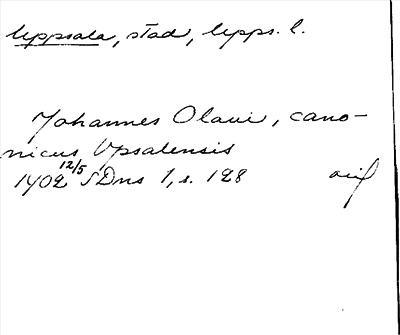 Uppsala, stad, Upps. l.
Johannes Olaui, cano-
nicus Upsalensis
1402 12/5 SDns 1, s. 128